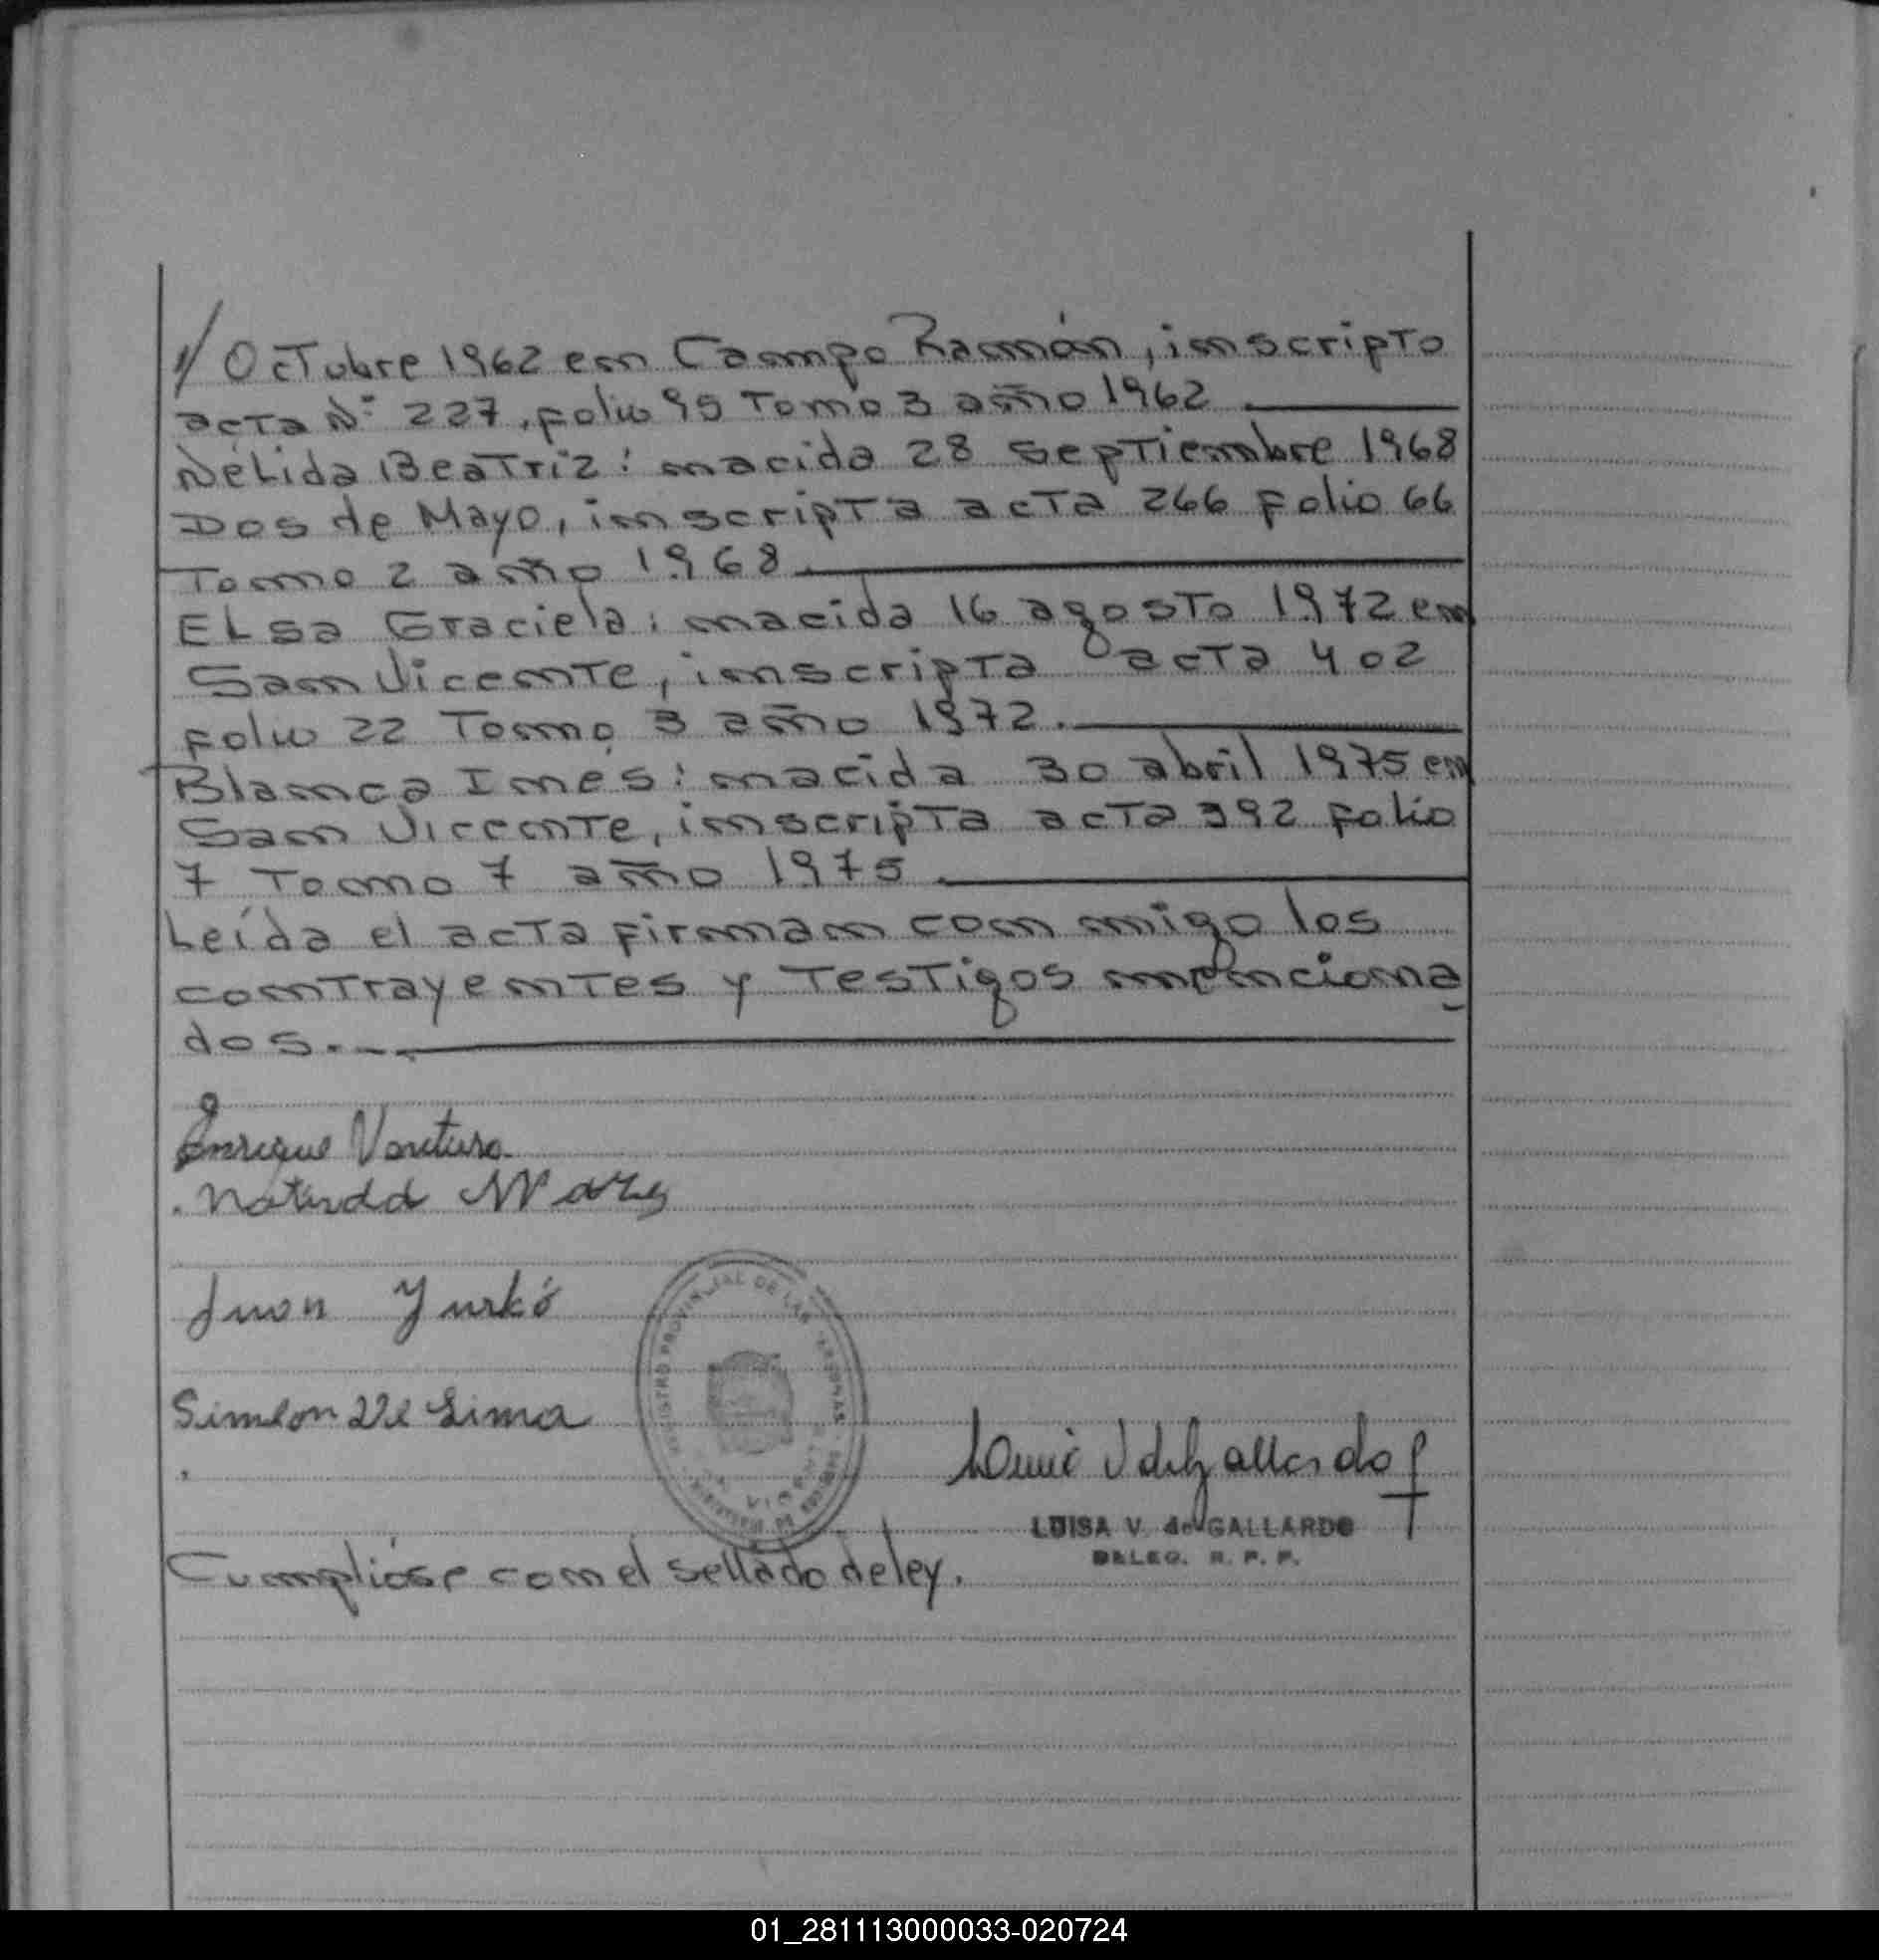 // Octubre 1962 en Campo Ramón, inscripto
acta Nº 227, folio 95 Tomo 3 año 1962.
Nélida Beatriz: nacida 28 Septiembre 1968
Dos de Mayo, inscripta acta 266 folio 66
Tomo 2 año 1968.
Elsa Graciela: nacida 16 agosto 1972 en
San Vicente, inscripta acta 402
folio 22 Tomo 3 año 1972.
Blanca Inés: nacida 30 abril 1975 en
San Vicente, inscripta acta 392 folio
7 Tomo 7 año 1975.
Leída el acta firman con migo los
contrayentes y Testigos menciona
dos.
Enrique Ventura
Juan Yurkó
Simeon De Lima
REGISTRO PROVINCIAL DE LAS PERSONAS
LUISA V. de GALLARDO
DELEG. R. P. P.
Cumplióse con el sellado de ley.
01_281113000033-020724